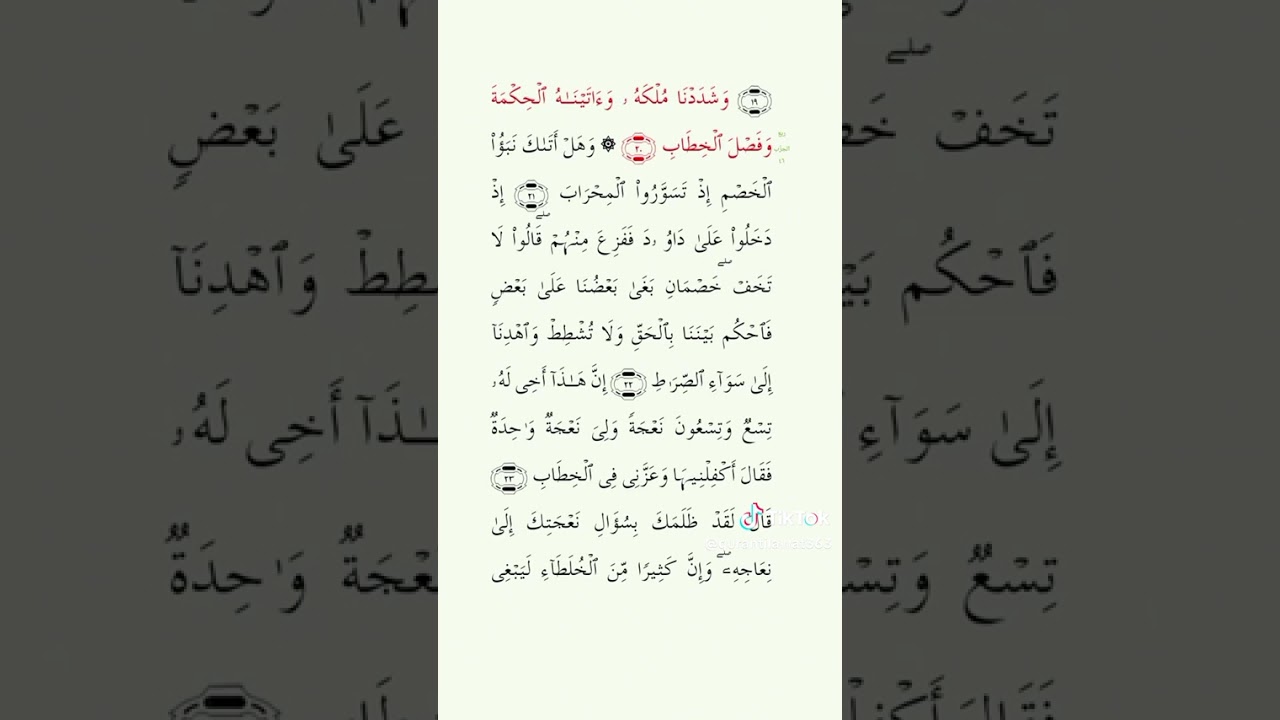 ١٩ وَشَدَدْنَا مُلْكَهُۥ وَءَاتَيْنَـٰهُ ٱلْحِكْمَةَ
وَفَصْلَ ٱلْخِطَابِ ٢٠ ۞ وَهَلْ أَتَىٰكَ نَبَؤُا۟
ٱلْخَصْمِ إِذْ تَسَوَّرُوا۟ ٱلْمِحْرَابَ ٢١ إِذْ
دَخَلُوا۟ عَلَىٰ دَاوُۥدَ فَفَزِعَ مِنْهُمْ ۖ قَالُوا۟ لَا
تَخَفْ ۖ خَصْمَانِ بَغَىٰ بَعْضُنَا عَلَىٰ بَعْضٍ
فَٱحْكُم بَيْنَنَا بِٱلْحَقِّ وَلَا تُشْطِطْ وَٱهْدِنَآ
إِلَىٰ سَوَآءِ ٱلصِّرَٰطِ ٢٢ إِنَّ هَـٰذَآ أَخِى لَهُۥ
تِسْعٌ وَتِسْعُونَ نَعْجَةً وَلِىَ نَعْجَةٌ وَٰحِدَةٌ
فَقَالَ أَكْفِلْنِيهَا وَعَزَّنِى فِى ٱلْخِطَابِ ٢٣
قَالَ لَقَدْ ظَلَمَكَ بِسُؤَالِ نَعْجَتِكَ إِلَىٰ
نِعَاجِهِۦ ۖ وَإِنَّ كَثِيرًا مِّنَ ٱلْخُلَطَآءِ لَيَبْغِى
TikTok